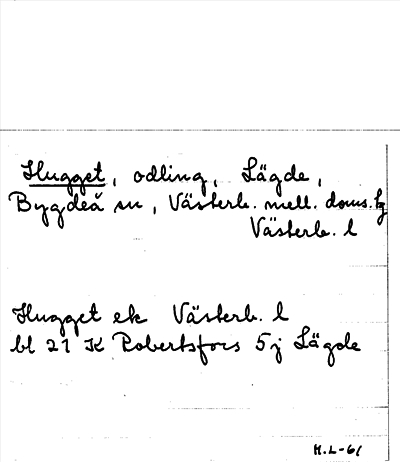 Hugget, odling, Lägde,
Bygdeå sn, Västerb. mell. doms. tg
Västerb. l
Hugget ek Västerb. l
bl 21 K Robertsfors 5j Lägde
H.L-61